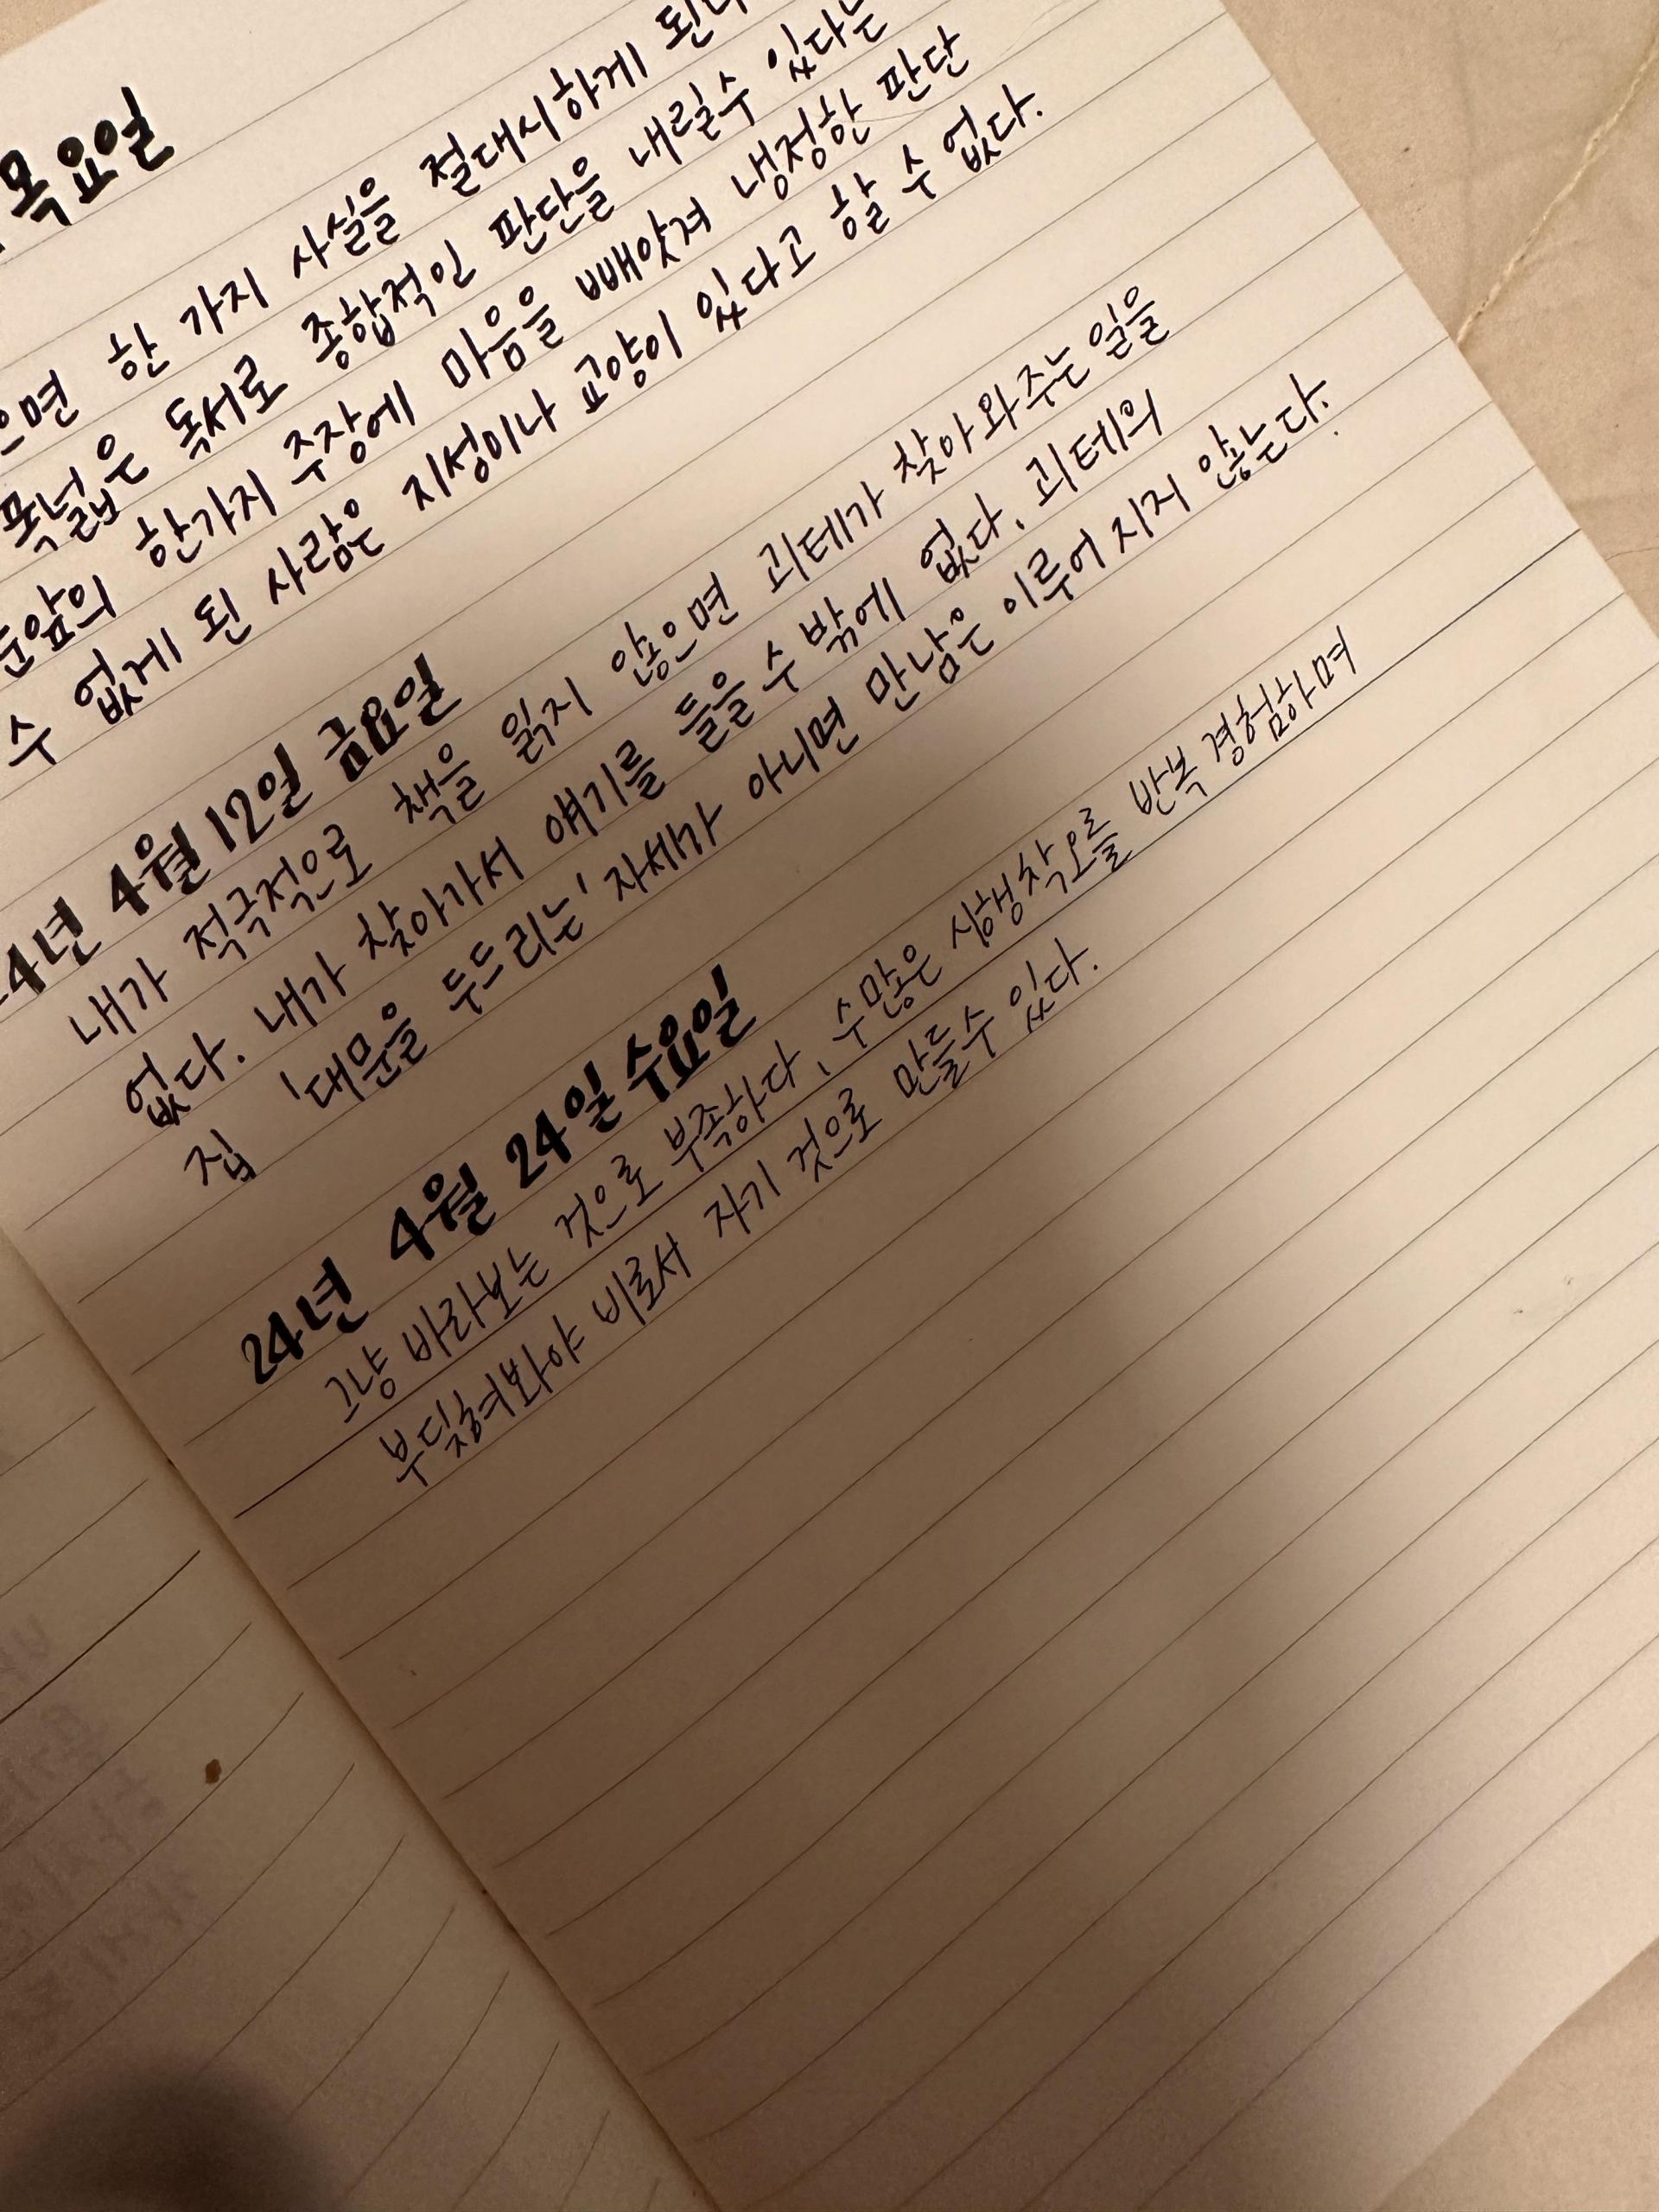 목요일
한 가지 사실을 절대시하게
폭넓은 독서로 종합적인 판단을 내릴수 있다는
눈앞의 한가지 주장에 마음을 빼앗겨 냉정한 판단
수 없게 된 사람은 지성이나 교양이 있다고 할 수 없다.
4년 4월 12일 금요일
내가 적극적으로 책을 읽지 않으면 괴테가 찾아와주는 일을
없다. 내가 찾아가서 얘기를 들을 수 밖에 없다. 괴테의
집 '대문을 두드리는' 자세가 아니면 만남은 이루어 지지 않는다.
24년 4월 24일 수요일
그냥 바라보는 것으로 부족하다, 수많은 시행착오를 반복 경험하며
부딪혀봐야 비로서 자기 것으로 만들수 있다.